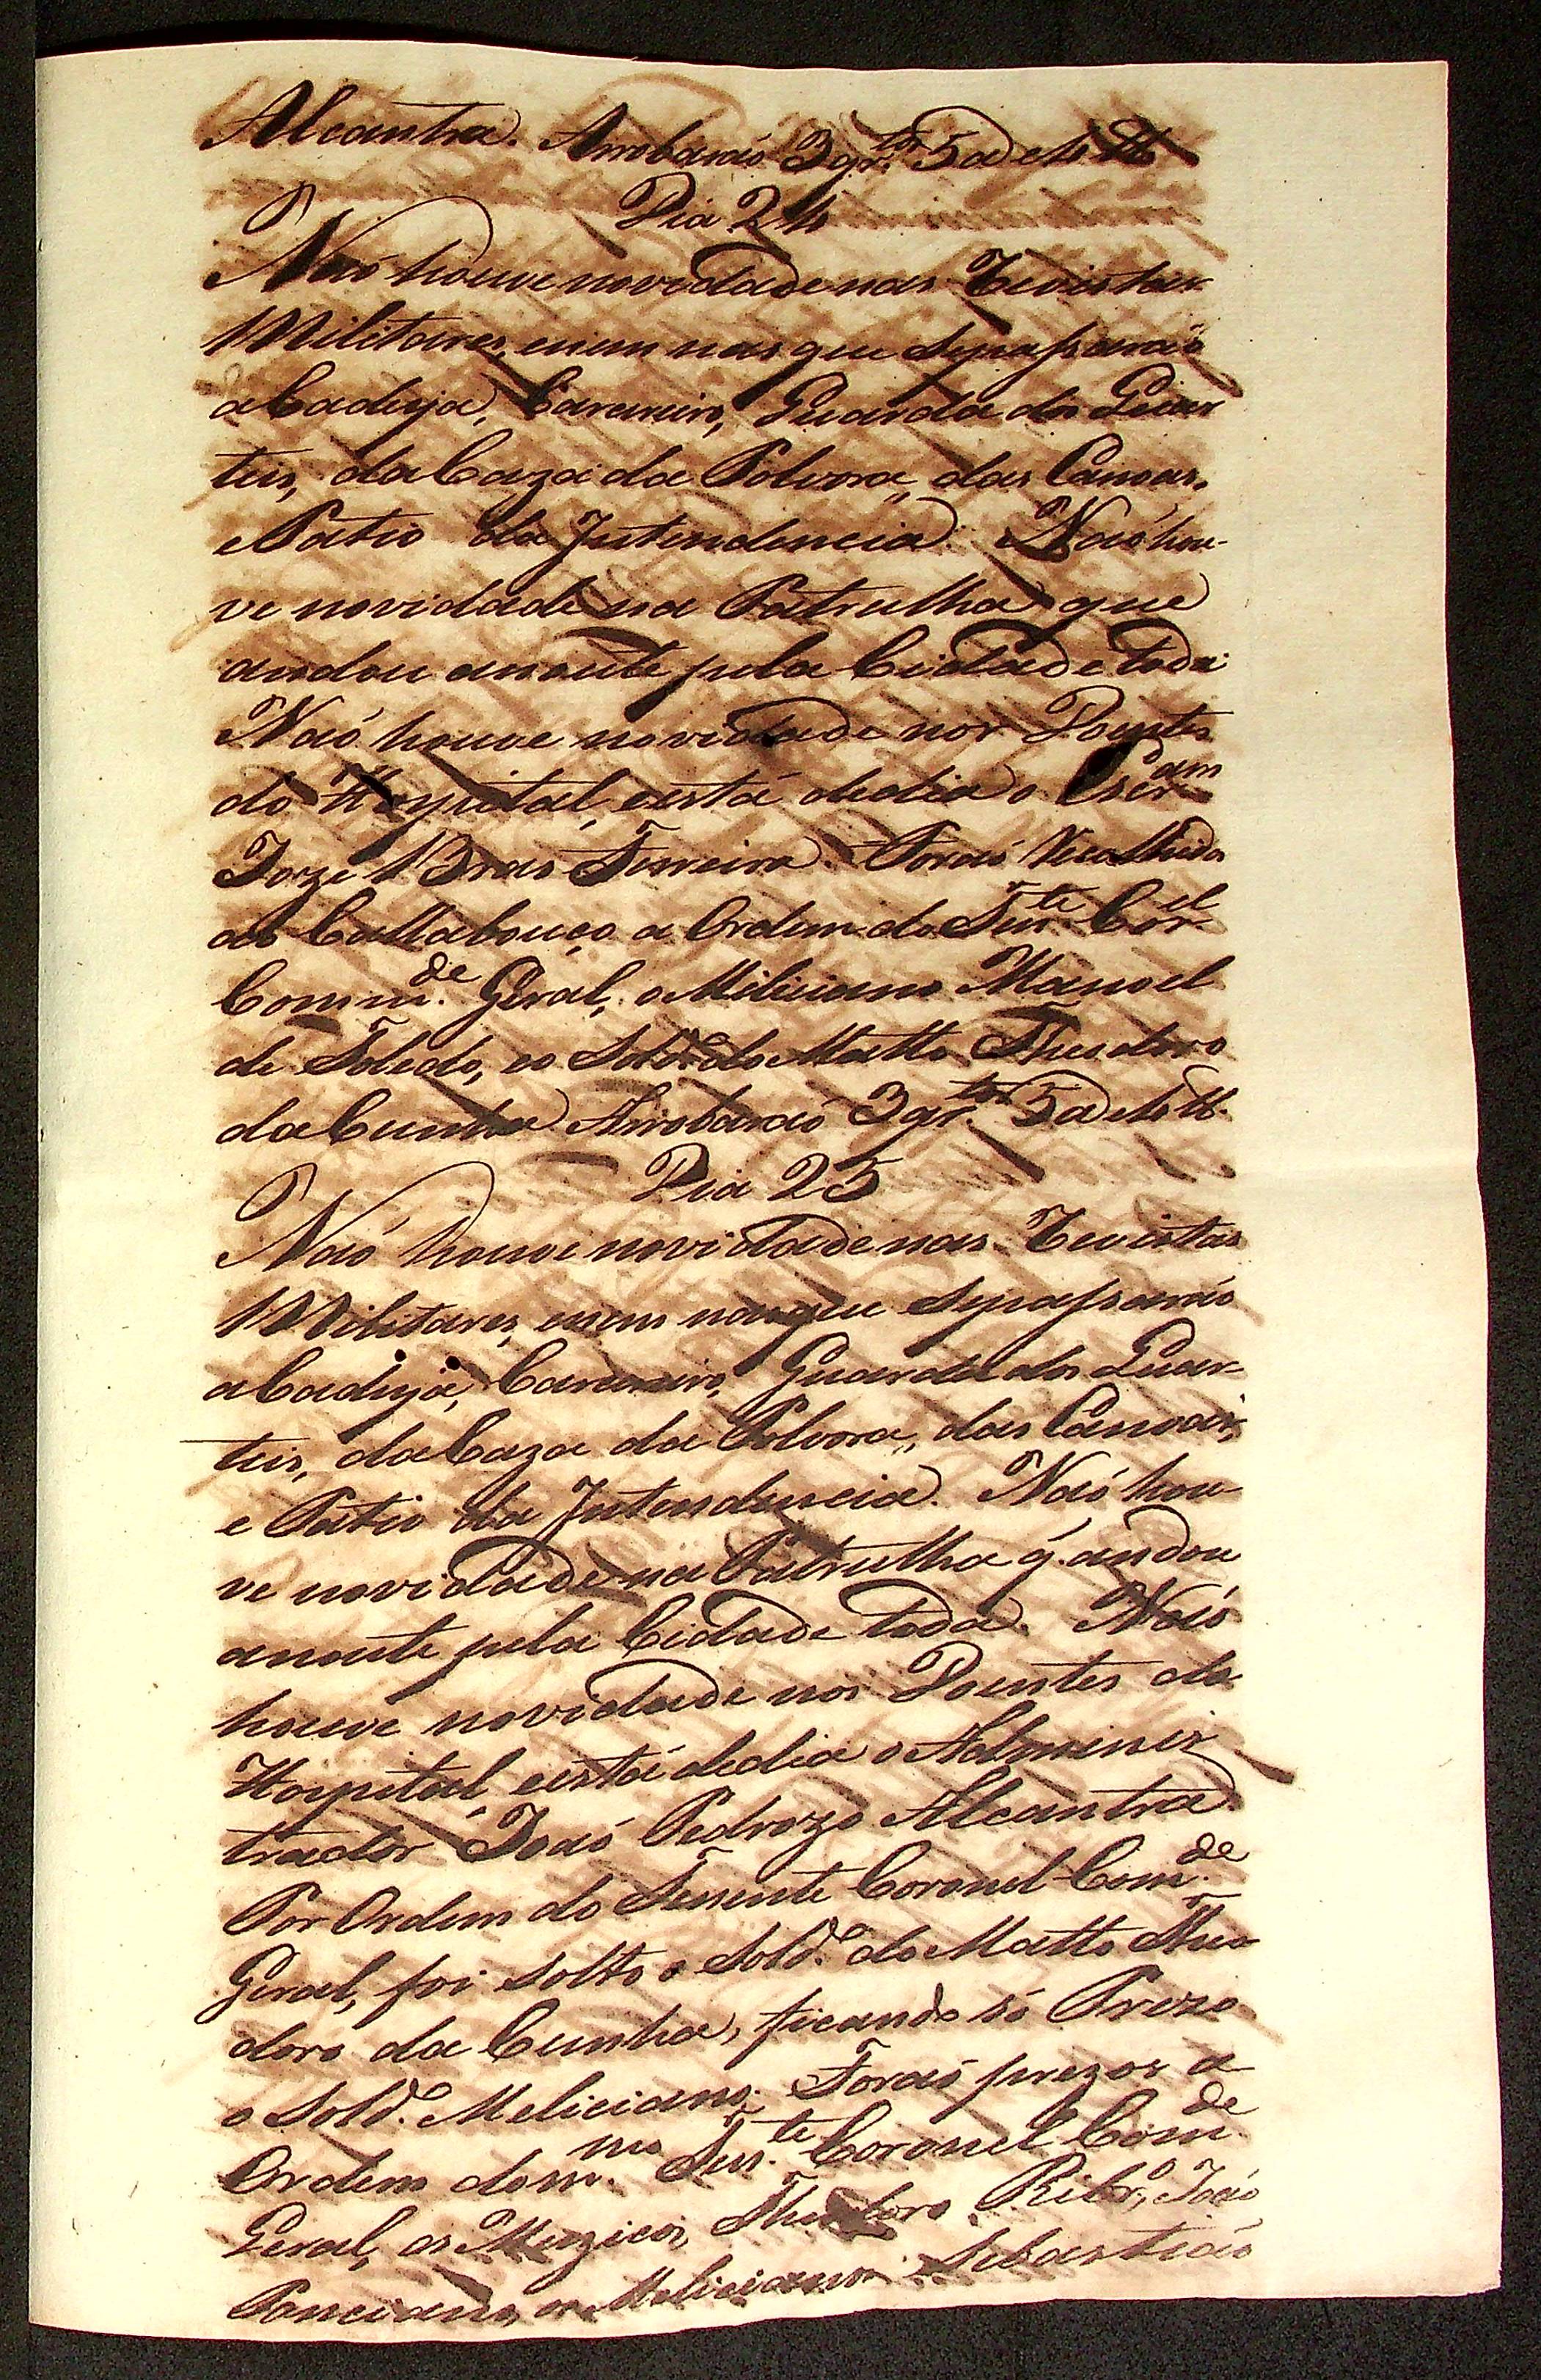 Alcantra. Arrobaraó 3 qr.tos 5 a de
Dia 24
Naó houve novidade nas Revistas
Militares, enem nas que sepaſsaraõ
a Cadeya, Carcereiro, Guarda dos Quar
teis, da Caza da Polvora, das Canoas,
e Patio da Intendencia. Naó hou-
ve novidade na Patrulha que
andou anoute pela Cidade toda
Naó houve novidade nos Doentes
do Hospital, eestá dedia o Escr.am
Joze Bras Ferreira. Foraó Recolhidos
ao Callabouço a Ordem do Ten.te Cor.el
Comm.de Geral, o Miliciano Manoel
de Toledo, eo Sold.o do Matto Theodoro
da Cunha Arrobaraó 3 qr.tos 5 a de
Dia 25
Naó houve novidade nas Revistas
Militares, enem nas que Sepaſsaraó
a Cadeya, Carcereiro, Guarda dos Quar-
teis, da Caza da Polvora, das Canoas,
e Patio da Intendencia. Naó hou-
ve novidade na Patrulha q. andou
anoute pela Cidade toda. Naó
houve novidade nos Doentes do
Hospital, eestá dedia o Adminis
trador Joaó Pedrozo Alcantra.
Por Ordem do Tenente Coronel Com.de
Geral, foi Solto o Sold.o do Matto Theo
doro da Cunha, ficando só Prezo
o Sold.o Meliciano. Foraó prezos a
Ordem dom.mo Ten.te Coronel Com.de
Geral, os Muzicos, Theodoro Ribr.o, Joaó
Ponciano, os Milicianos Sebastiaó